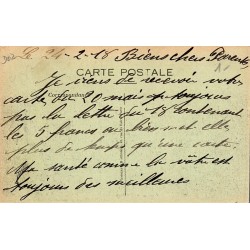 Le 24-2-18 Biens chers Parents
CARTE POSTALE
Je viens de recevoir votre
carte du 20 mais toujours
pas la lettre du 18 contenant
les 5 francs au bien met elle
plus de temps qu'une carte.
Ma santé comme la vôtre est
toujours des meilleures